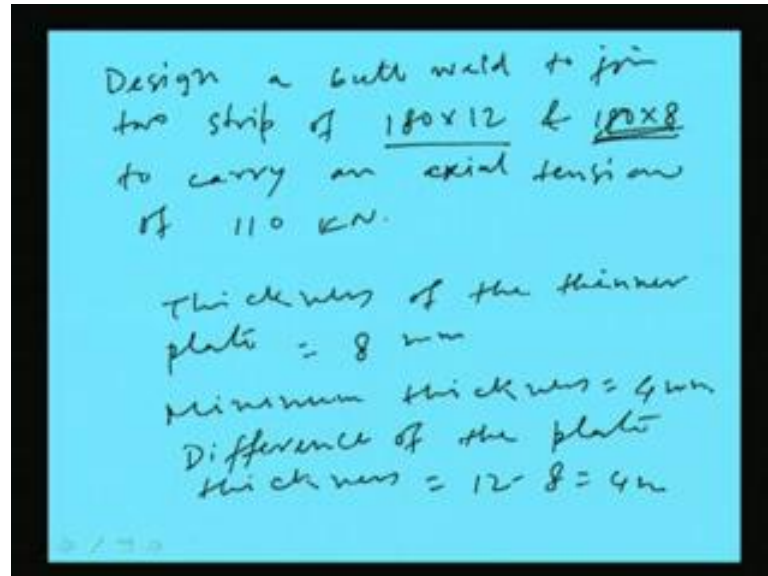 Design a butt weld to join
two strip of 180x12 & 180x8
to carry an axial tension
of 110 KN.
Thickness of the thinner
plate = 8 mm
Minimum thickness = 4mm
Difference of the plate
thickness = 12-8 = 4m